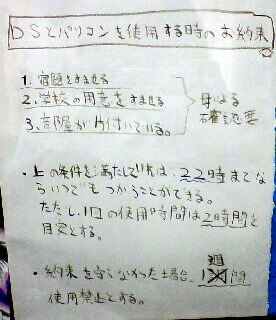 DSとパソコンを使用する時のお約束
1. 宿題をすませる
2. 学校の用意をすませる
3. 部屋が片付いている。
母による
確認要
・上の条件を満たして
22時まで な
らいつでもつかうことができる。
ただし、1日の使用時間は2時間を
目安とする。
・約束を守らなかった場合、1週間
使用禁止とする。